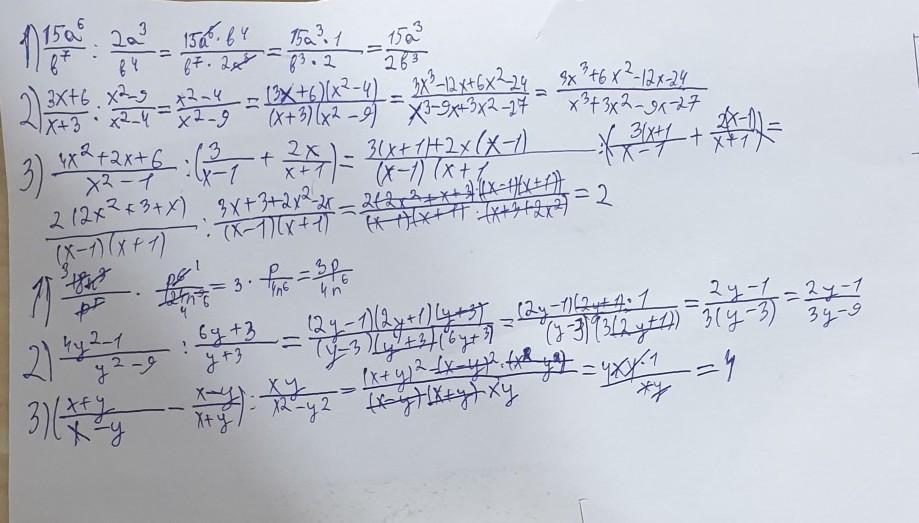 1) 15a⁶/b⁷ : 2a³/b⁴ = 15a⁶·b⁴/b⁷·2a³ = 15a³·1/b³·2 = 15a³/2b³
2) 3x+6/x+3 : x²-9/x²-4 = x²-4/x²-9 = (3x+6)(x²-4)/(x+3)(x²-9) = 3x³-12x+6x²-24/x³-9x+3x²-27 = 3x³+6x²-12x-24/x³+3x²-9x-27
3) 4x²+2x+6/x²-1 : (3/x-1 + 2x/x+1) = 3(x+1)+2x(x-1)/(x-1)(x+1 : (3(x+1/x-1 + 2(x-1)/x+1) =
2(2x²+3+x)/(x-1)(x+1) : 3x+3+2x²-2x/(x-1)(x+1) = 2(2x²+x+3)·((x-1)(x+1))/(x-1)(x+1)·(x+3+2x²) = 2
= 3 · p/4n⁶ = 3p/4n⁶
2) 4y²-1/y²-9 : 6y+3/y+3 = (2y-1)(2y+1)(y+3)/(y-3)(y+3)(6y+3) = (2y-1)(2y+1)·1/(y-3)(3(2y+1)) = 2y-1/3(y-3) = 2y-1/3y-9
3) (x+y/x-y - x-y/x+y) : xy/x²-y² = (x+y)²-(x-y)²·(x²-y²)/(x-y)(x+y)·xy = 4xy·1/xy = 4